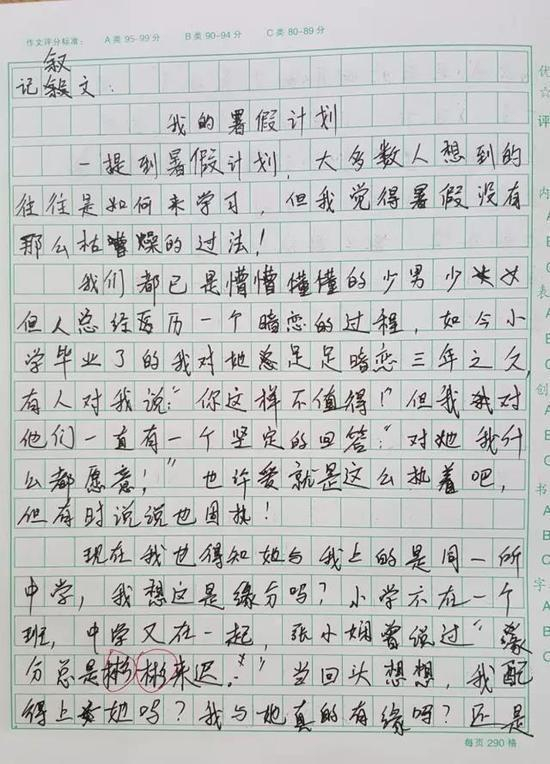 作文评分标准： A类 95-99分 B类 90-94分 C类 80-89分
叙
记文：
我的暑假计划
一提到暑假计划，大多数人想到的
往往是如何来学习，但我觉得暑假没有
那么枯燥的过法！
我们都已是懵懵懂懂的少男少女
但人总经历一个暗恋的过程，如今小
学毕业了的我对她足足暗恋三年之久，
有人对我说："你这样不值得！"但我对
他们一直有一个坚定的回答："对她我什
么都愿意！"也许爱就是这么执着吧，
但有时说说也固执！
现在我也得知她与我上的是同一所
中学，我想这是缘分吗？小学不在一个
班，中学又在一起，张小娴曾说过"缘
分总是彬彬来迟。"当回头想想，我配
得上她吗？我与她真的有缘吗？还是
每页 290 格
优
☆
评
内
A
B
C
表
A
B
C
创
A
B
C
书
A
B
C
字
A
B
C